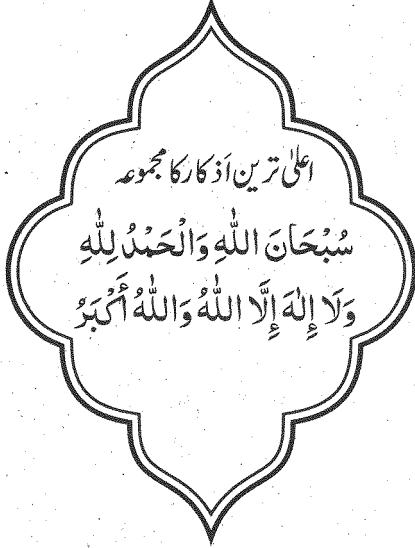 اعلیٰ ترین اَذکار کا مجموعہ
سُبْحَانَ اللّٰهِ وَالْحَمْدُ لِلّٰهِ
وَلَا إِلٰهَ إِلَّا اللّٰهُ وَاللّٰهُ أَكْبَرُ